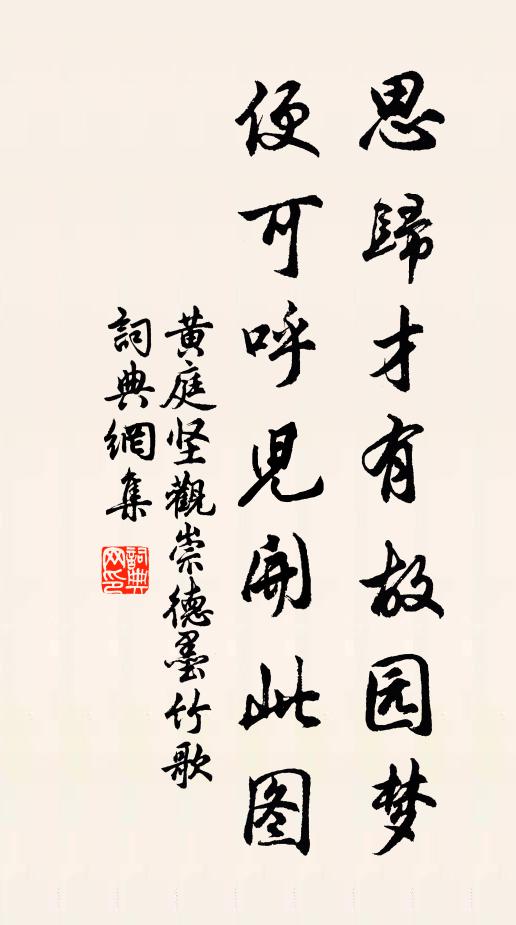 思歸才有故园梦
便可呼児開此图
黄庭坚觀崇德墨竹歌
詞典網集
詞典网印